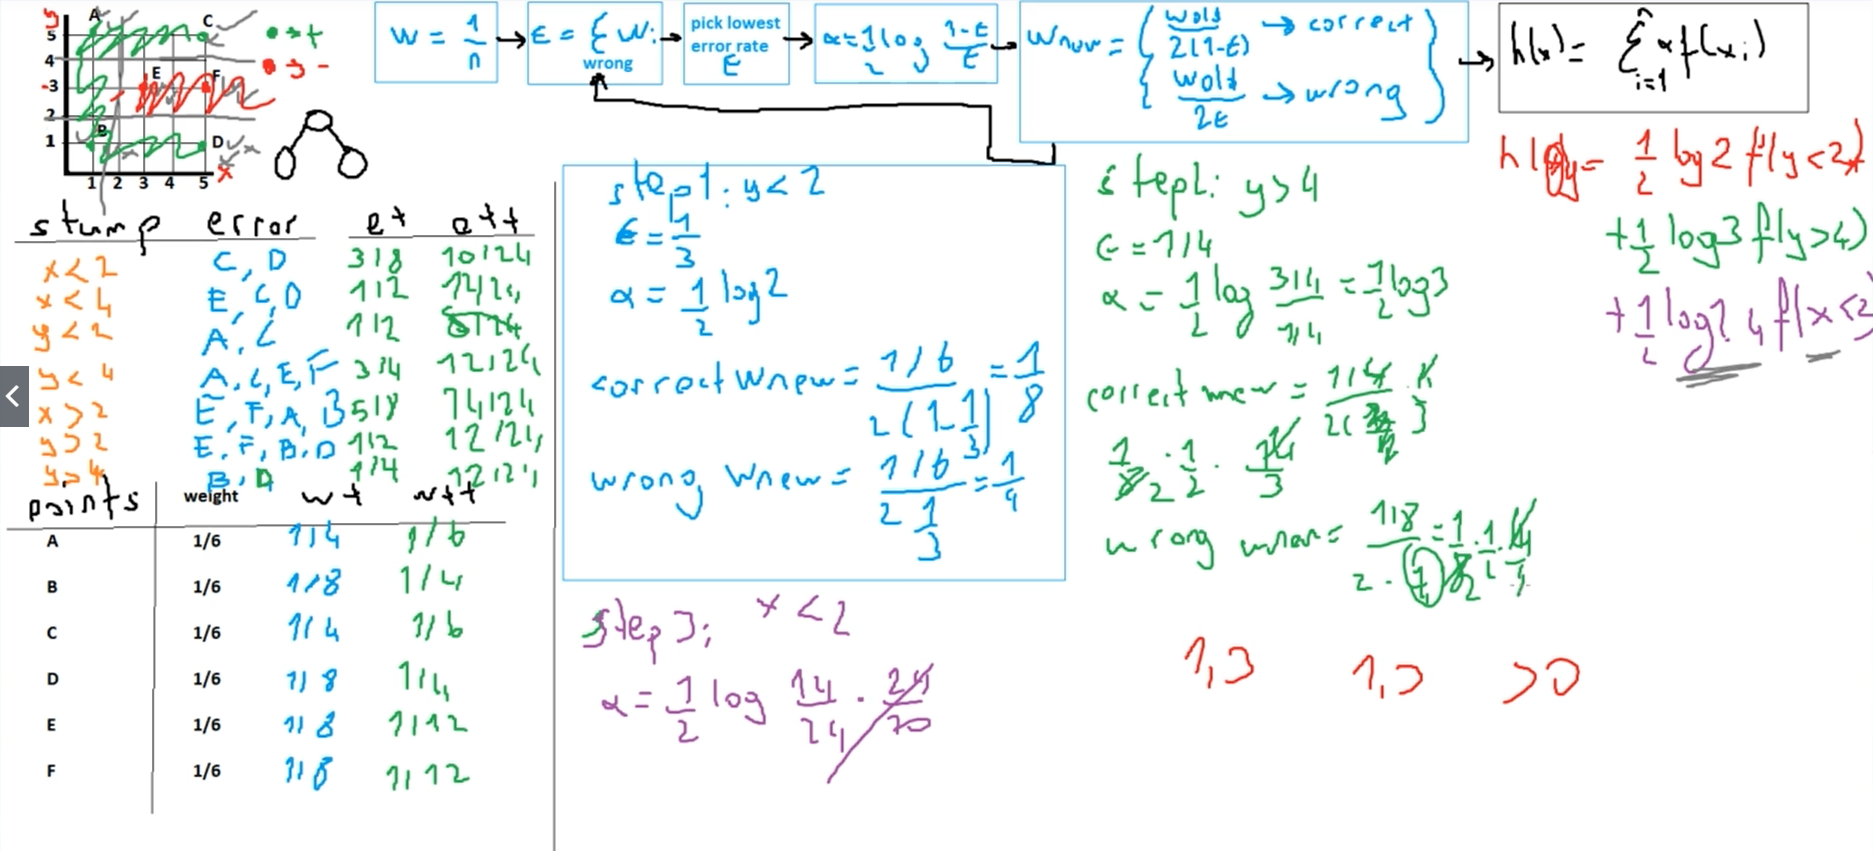 y
5
4
-3
2
1
1 2 3 4 5 x
A
B
C
D
E
F
+
-
w = 1/n
ε = Σ wi
wrong
pick lowest
error rate
ε
α = 1/2 log (1-ε)/ε
wnew = { wold / 2(1-ε) → correct
wold / 2ε → wrong }
h(x) = Σ α f(xi)
n
i=1
stump error et ett
x < 2 C, D 3/8 10/24
x < 4 E, C, D 1/2
y < 2 A, C 1/2
y < 4 A, C, E, F 3/4 12/24
x > 2 E, F, A, B 5/8 14/24
y > 2 E, F, B, D 1/2 12/24
y > 4 B, D 1/4 12/24
points weight wt wtt
A 1/6 1/4 1/6
B 1/6 1/8 1/4
C 1/6 1/4 1/6
D 1/6 1/8 1/4
E 1/6 1/8 1/12
F 1/6 1/8 1/12
step1: y < 2
ε = 1/3
α = 1/2 log 2
correct wnew = 1/6 / 2(1-1/3) = 1/8
wrong wnew = 1/6 / 2 1/3 = 1/4
step2: y > 4
ε = 1/4
α = 1/2 log 3/4 / 1/4 = 1/2 log 3
correct wnew =
1/8 · 1/2 · 4/3
wrong wnew = 1/8
step 3: x < 2
α = 1/2 log 14/24 · 24/10
h = 1/2 log 2 f(y < 2)
+ 1/2 log 3 f(y > 4)
+ 1/2 log 1,4 f(x < 2)
1,3 1,3 > 0